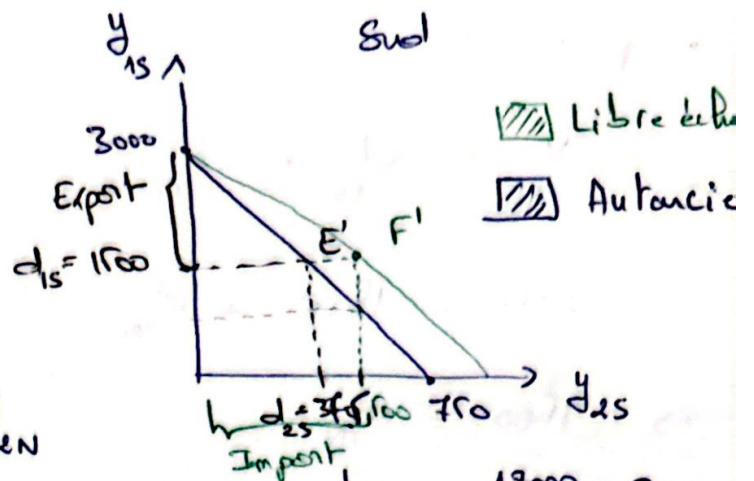 Sud
y1S
3000
Export
d1S = 1500
E'
F'
Libre
Autarcie
d2S = 375
500
750
y2S
Import
eN